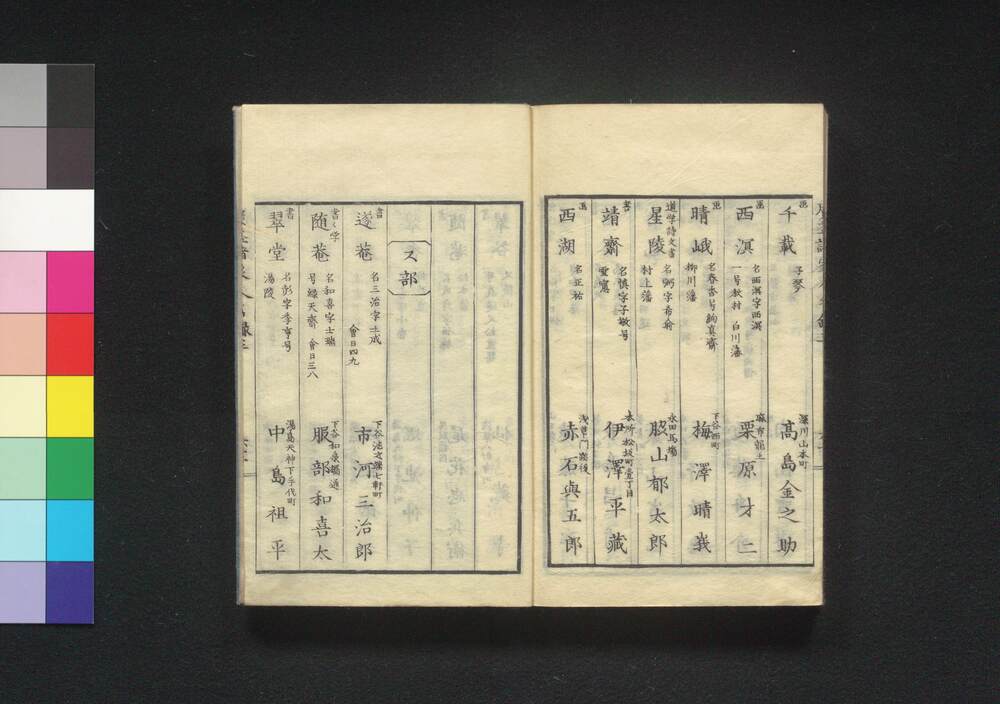 画 千載 子琴
深川山本町 高島金之助
画 西溟 名西溟字西溟
一号秋村 白川藩
麻布龍土 栗原才二
画 晴峨 名春香号納真齋
柳川藩
下谷西町 梅澤晴峩
道学詩文書 星陵 名弼字希翁
村上藩
永田馬場 山郁太郎
書 靖齋 名慎字子敬号
愛窻
本所松坂町壹丁目 伊澤平藏
画 西湖 名正祐
浅草門跡後 赤石與五郎
ス部
書 遂菴 名三治字士成
會日四九
下谷池之端七軒町 市河三治郎
書々学 随菴 名和喜字士璉
号緑天齋 會日三八
下谷和泉橋通 服部和喜太
書 翠堂 名彭字季亨号
湯陵
湯島天神下手代町 中島祖平